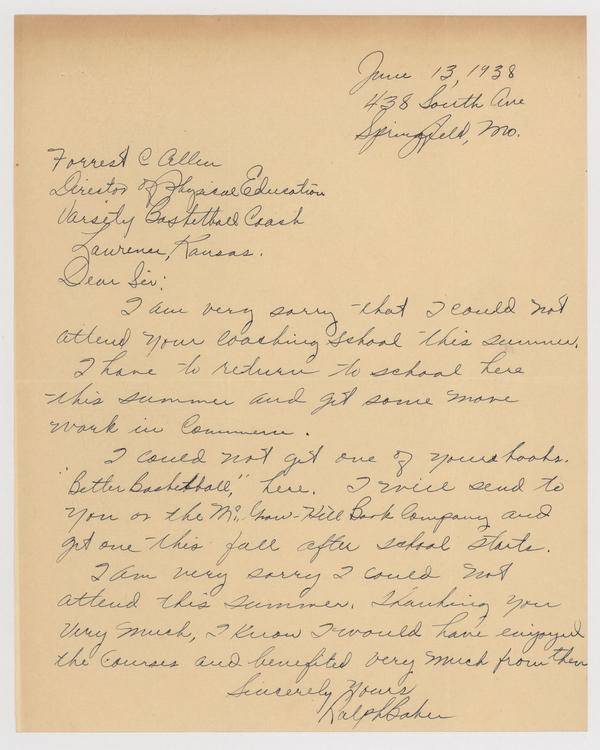 June 13, 1938
438 South Ave
Springfield, Mo.
Forrest C Allen
Director of Physical Education
Varsity Basketball Coach
Lawrence, Kansas.
Dear Sir:
I am very sorry that I could not
attend your coaching school this summer.
I have to return to school here
this summer and get some more
work in Commerce.
I could not get one of your books.
"Better Basketball," here. I will send to
you or the Mc Graw-Hill Book Company and
get one this fall after school starts.
I am very sorry I could not
attend this summer. Thanking you
very much, I know I would have enjoyed
the courses and benefited very much from them
Sincerely Yours
Ralph Baker